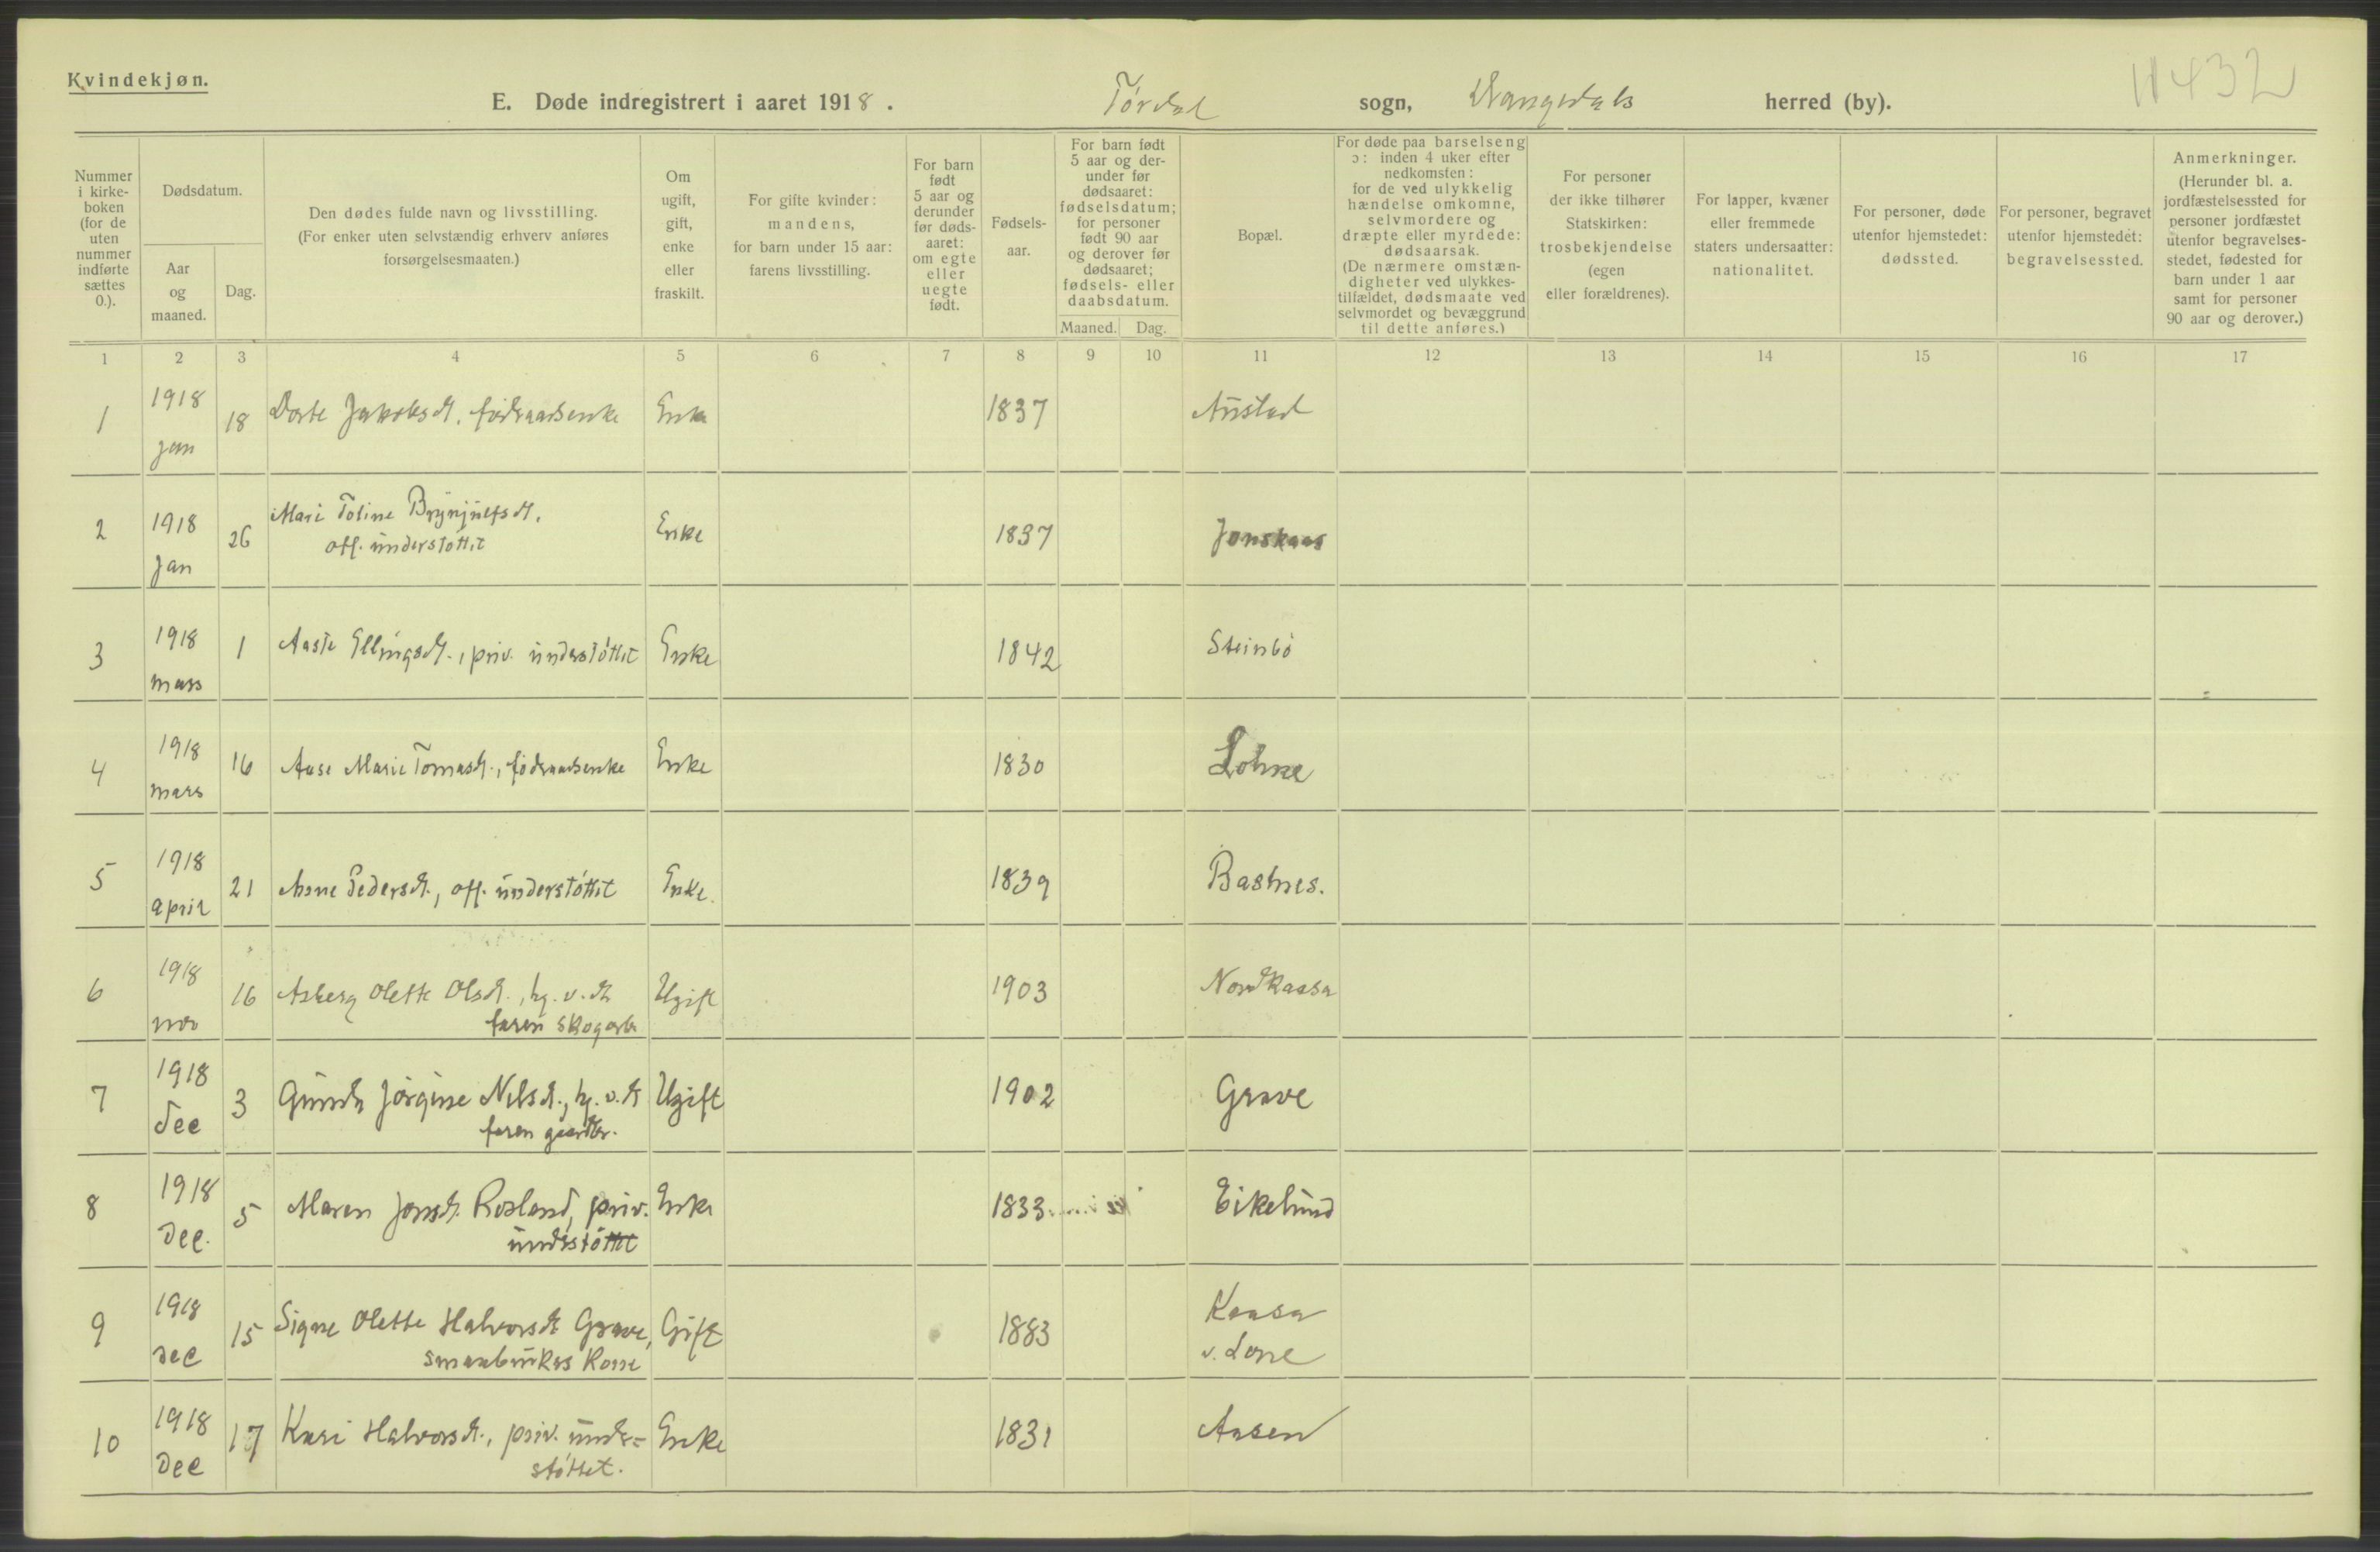 Kvindekjøn.
E. Døde indregistrert i aaret 1918. Tørdal sogn, Drangedals herred (by).
11432
Nummer i kirkeboken (for de uten nummer indførte sættes 0.).
Dødsdatum.
Aar og maaned.
Dag.
Den dødes fulde navn og livsstilling.
(For enker uten selvstændig erhverv anføres forsørgelsesmaaten.)
Om ugift, gift, enke eller fraskilt.
For gifte kvinder: mandens, for barn under 15 aar: farens livsstilling.
For barn født 5 aar og derunder før dødsaaret: om egte eller uegte født.
Fødselsaar.
For barn født 5 aar og derunder før dødsaaret: fødselsdatum; for personer født 90 aar og derover før dødsaaret; fødsels- eller daabsdatum.
Maaned. Dag.
Bopæl.
For døde paa barselseng ɔ: inden 4 uker efter nedkomsten: for de ved ulykkelig hændelse omkomne, selvmordere og dræpte eller myrdede: dødsaarsak. (De nærmere omstændigheter ved ulykkestilfældet, dødsmaate ved selvmordet og bevæggrund til dette anføres.)
For personer der ikke tilhører Statskirken: trosbekjendelse (egen eller forældrenes).
For lapper, kvæner eller fremmede staters undersaatter: nationalitet.
For personer, døde utenfor hjemstedet: dødssted.
For personer, begravet utenfor hjemstedet: begravelsessted.
Anmerkninger. (Herunder bl. a. jordfæstelsessted for personer jordfæstet utenfor begravelsesstedet, fødested for barn under 1 aar samt for personer 90 aar og derover.)
1 2 3 4 5 6 7 8 9 10 11 12 13 14 15 16 17
1 1918 Jan 18 Dorte Jakobsdt. føderaadsenke Enke 1837 Austad
2 1918 Jan 26 Mari Toline Brynjulfsdt.
off. understøttet Enke 1837 Jonskaas
3 1918 mars 1 Aaste Ellingsdt., priv. understøttet Enke 1842 Steinbö
4 1918 mars 16 Aase Marie Tomasdt., føderaadsenke Enke 1830 Lohne
5 1918 april 21 Anne Pedersdt., off. understøttet Enke. 1839 Bastnes.
6 1918 nov 16 Asberg Olette Olsdt., hj. v. dt
faren skogarb. Ugift 1903 Nordkaasa
7 1918 Dec 3 Gunda Jørgine Nilsdt., hj. v. dt
faren gaardbr. Ugift 1902 Grave
8 1918 Dec. 5 Maren Jonsdt. Rosland, priv.
understøttet Enke 1833 Eikelund
9 1918 Dec 15 Signe Olette Halvorsdt Grave,
smaabrukers kone Gift 1883 Kaasa
v. Lone
10 1918 Dec 17 Kari Halvorsdt., priv. under=
støttet. Enke 1831 Aasen